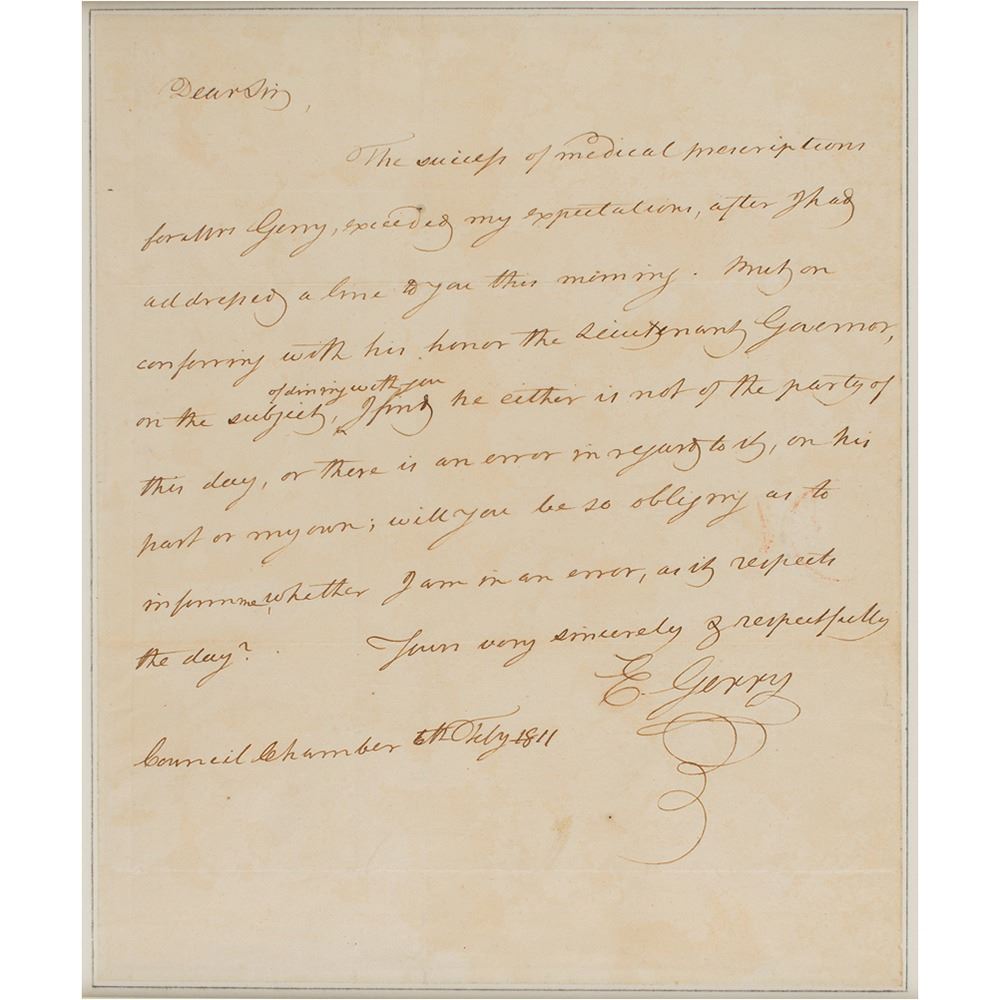 Dear Sir,
The success of medical prescriptions
for Mrs Gerry, exceeded my expectations, after I had
addressed a line to you this morning. But, on
conferring with his honor the Lieutenant Governor,
of dining with you
on the subject, I find he either is not of the party of
this day, or there is an error in regard to it, on his
part or my own; will you be so obliging as to
inform me, whether I am in an error, as it respects
the day?
Yours very sincerely & respectfully
E. Gerry
Council Chamber 6th Feby 1811